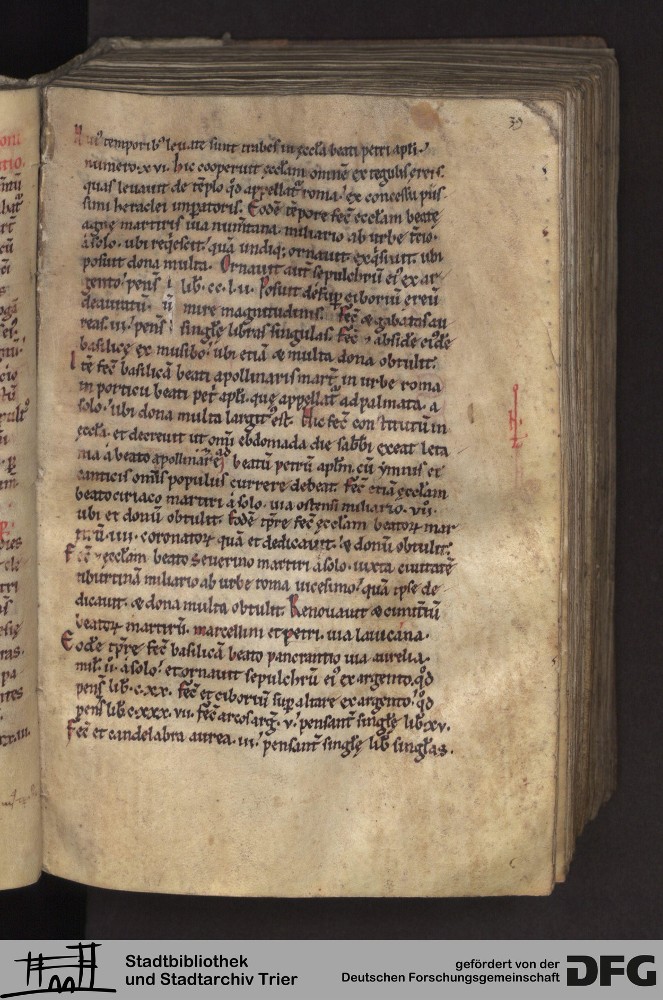 39
temporib' leuate sunt trabes in ęccła beati petri apłi.
numero. xvi. hic cooperuit ęccłam omnē ex tegulis ereis.
quas leuauit de tēplo qđ appellat̃ roma. ex concessu piis
simi heraclei impatoris. Eodē tēpore fec̄ ęccłam beatę
agne martiris uia num̄tana. miliario ab urbe t̃cio.
á solo. ubi reqͥescit. quā undiq; ornauit exqͥsiuit. ubi
posuit dona multa. Ornauit aut̄ sepulchrū ei' ex ar
gento. pens̄ lib̄. cc. l. ii. Posuit desup ciboriū ereū
deauratū. mire magnitudinis. Fec̄ & gabatas au
reas. iii. pens̄ singłę libras singulas. Fec̄ abside eiđe
basilicę ex musibo. ubi etiā & multa dona obtulit.
Itē fec̄ basilicā beati apollinaris mart̄ in urbe roma
in porticu beati pet̄ apłi. quę appellat̃ ad palmata. a
solo. ubi dona multa largit' est. Hic fec̄ constitutū in
ęccła. et decreuit ut om̄i ebdomada die sabb̄i exeat leta
nia á beato apollinare ad beatū petrū apłm. cū ymnis et
canticis om̄is populus currere debeat. Fec̄ etiā ęccłam
beato ciriaco martiri á solo. uia ostensi miliario. vii.
ubi et donū obtulit. Eodē tp̄re fec̄ ęccłam beatoꝝ mar
tirū. iiii. coronatoꝝ quā et dedicauit. & donū obtulit.
Fec̄ ęccłam beato seuerino martiri á solo. iuxta ciuitatē
tiburtinā miliario ab urbe roma uicesimo. quā ipse de
dicauit. & dona multa obtulit. Renouauit & cimit̄iū
beatoꝝ martirū. marcellini et petri. uia lauicana.
Eođe tp̄re fec̄ basilicā beato pancratio uia aurelia.
mił. ii. á solo. et ornauit sepulchrū ei' ex argento. qđ
pens̄ lib̄. c. xx. Fec̄ et ciboriū sup altare ex argento. qđ
pens̄ lib̄ c. xxx. vii. Fec̄ arcos arg̃. v. pensant̄ singłę lib̄ xv.
Fec̄ et candelabra aurea. iii. pensant̄ singłę lib̄ singłas.
Stadtbibliothek
und Stadtarchiv Trier
gefördert von der
Deutschen Forschungsgemeinschaft
DFG